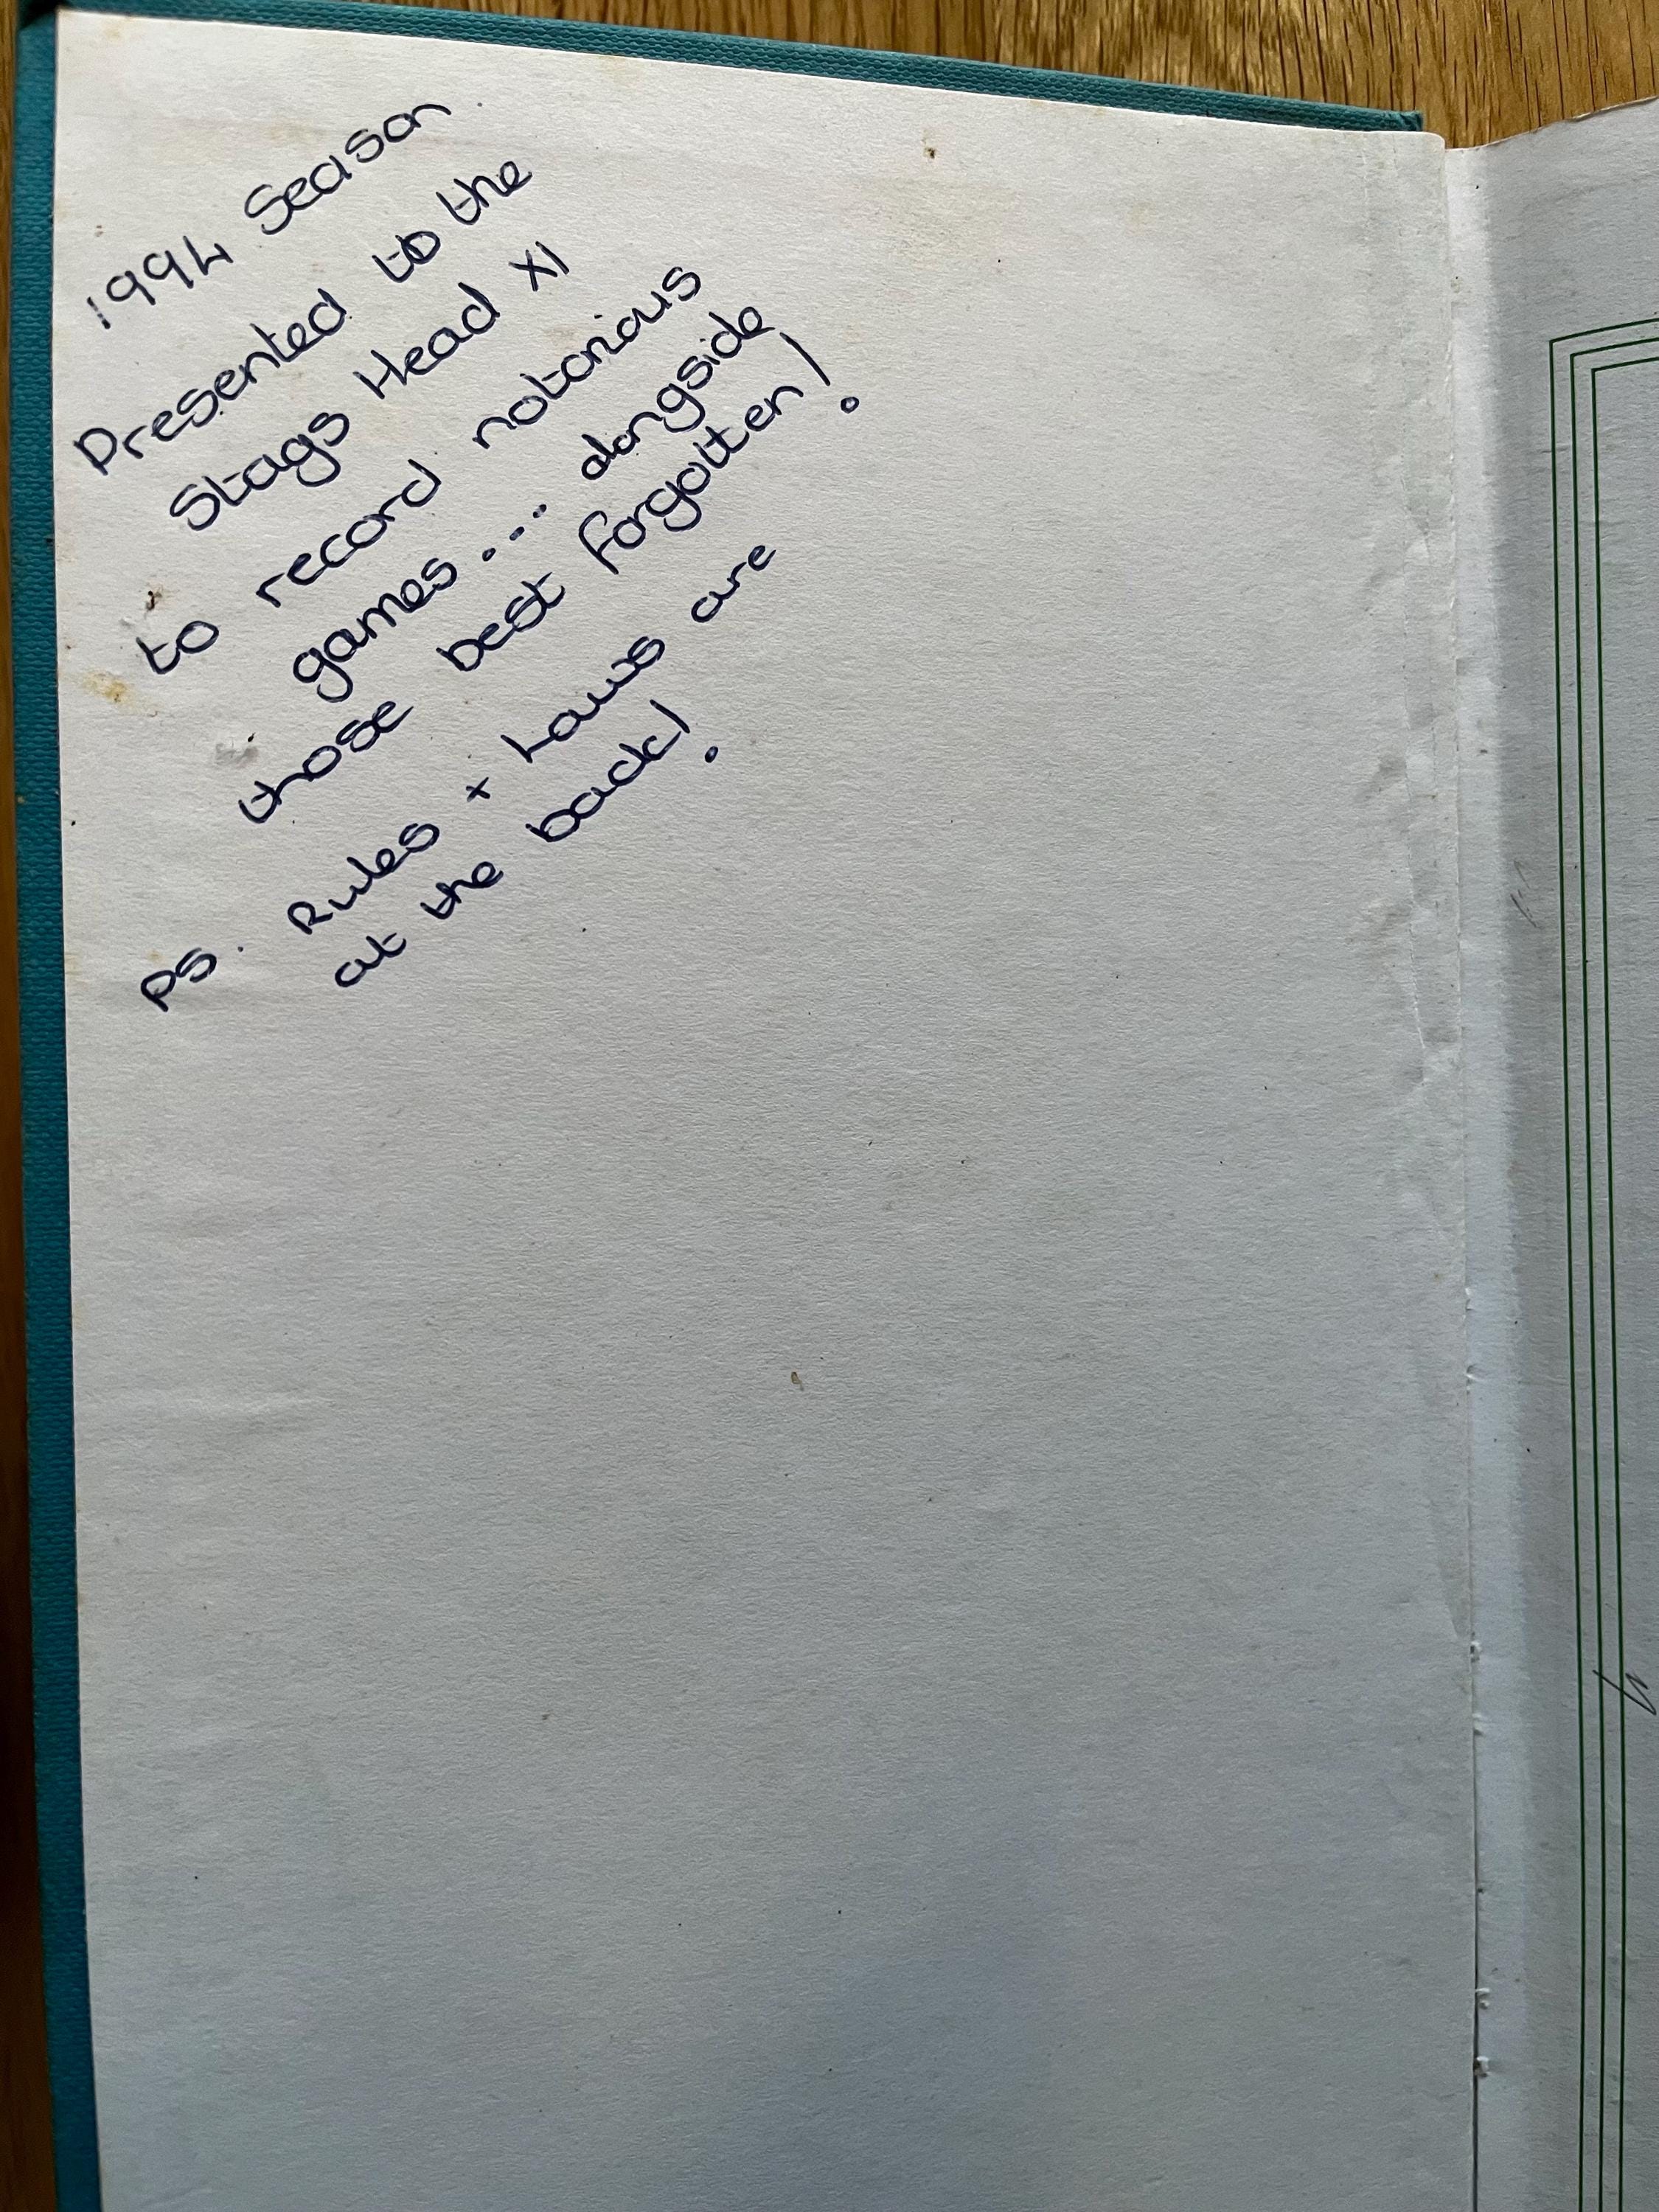 1994 Season
Presented to the
Stags Head XI
to record notorious
games... alongside
those best forgotten!
PS. Rules + Laws are
at the back!